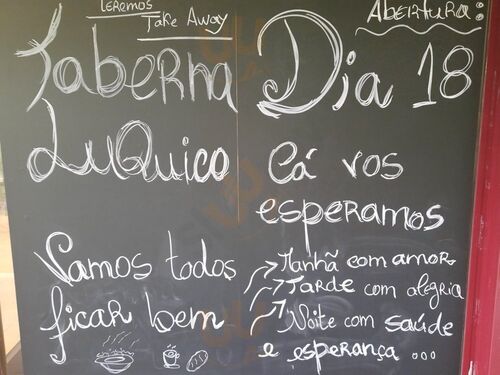 Teremos
Take Away
Taberna
LuQuico
Vamos todos
ficar bem
Abertura:
Dia 18
Cá vos
esperamos
Manhã com amor,
Tarde com alegria
Noite com saúde
e esperança ...